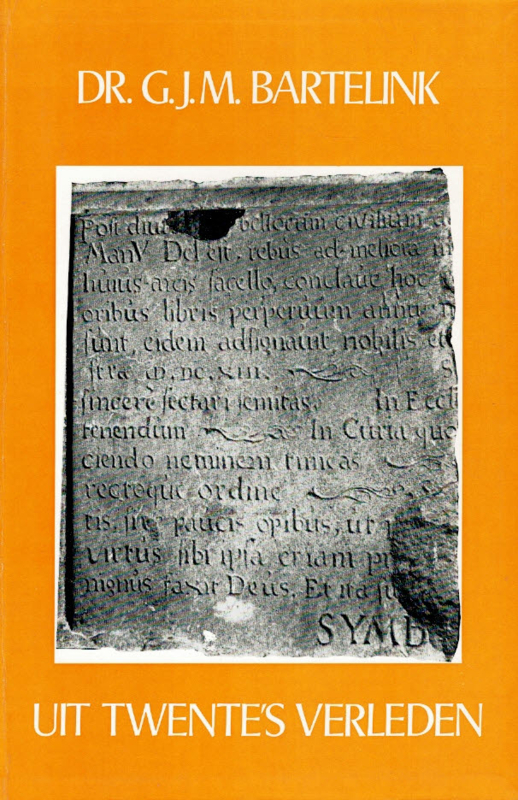 DR. G.J.M. BARTELINK
Post diut bellorum civilium
ManV Dei est, rebus ad meliora
huius arcis sacello, conclave hoc
oribus libris perpetuum annu
sunt, eidem adsignavit, nobilis et
stræ M.DC.XIII. S
sincere sectari semitas. In Eccl
tenendum In Curia quo
ciendo neminem timeas
rectoque ordine
tis, sine paucis opibus; ut
virtus sibi ipsa etiam pr
mignus faxit Deus. Et ita
SYMB
UIT TWENTE'S VERLEDEN